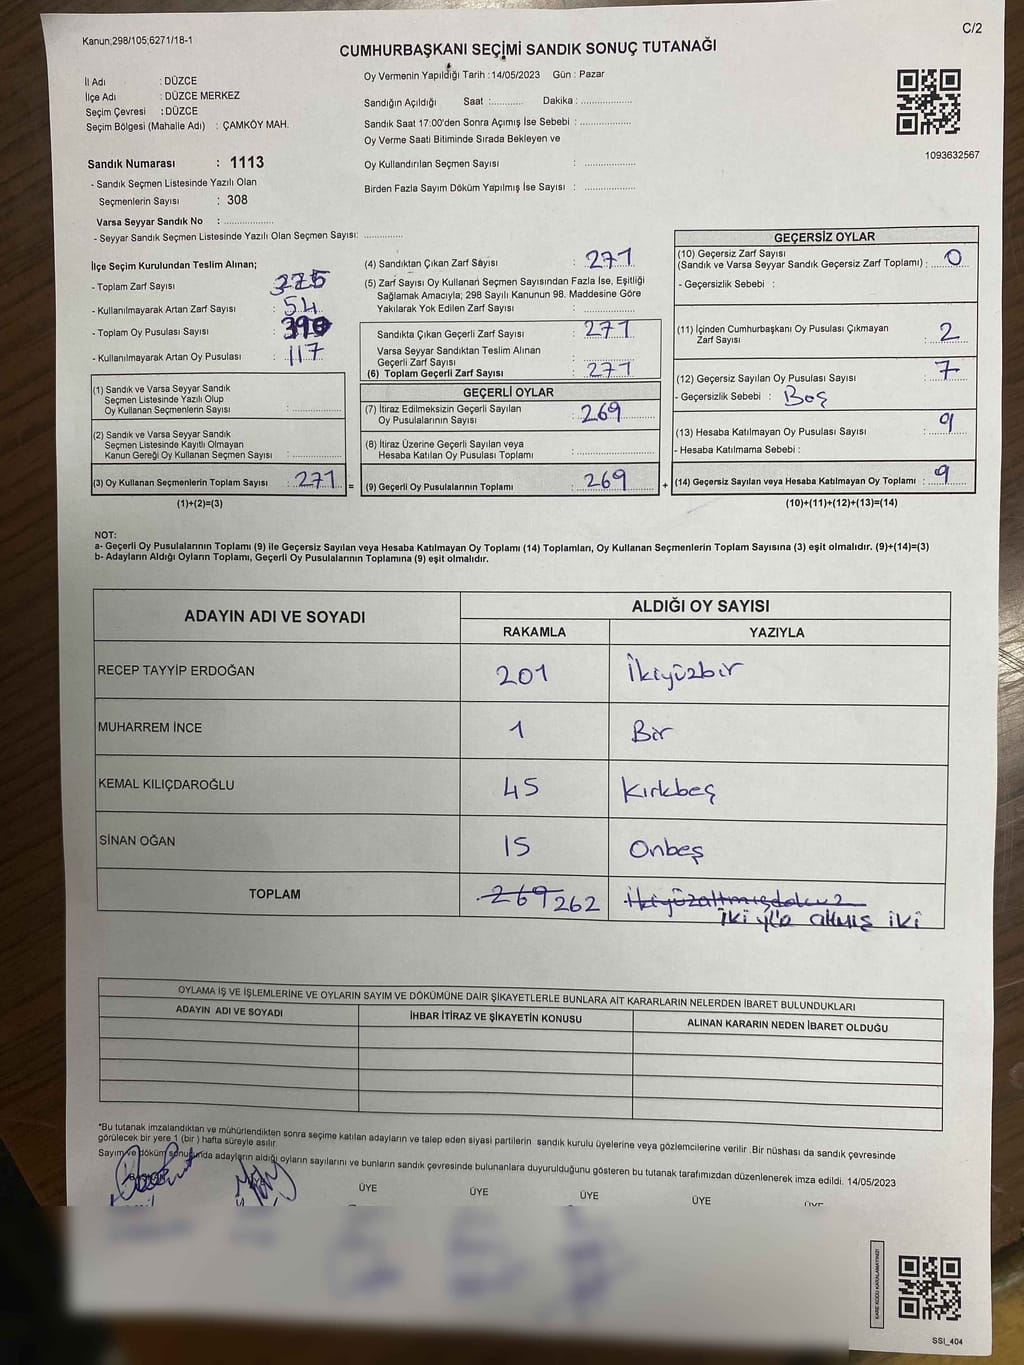 Kanun;298/105;6271/18-1
C/2
CUMHURBAŞKANI SEÇİMİ SANDIK SONUÇ TUTANAĞI
İl Adı : DÜZCE
İlçe Adı : DÜZCE MERKEZ
Seçim Çevresi : DÜZCE
Seçim Bölgesi (Mahalle Adı) : ÇAMKÖY MAH.
Sandık Numarası : 1113
- Sandık Seçmen Listesinde Yazılı Olan
Seçmenlerin Sayısı : 308
Varsa Seyyar Sandık No : ..................
- Seyyar Sandık Seçmen Listesinde Yazılı Olan Seçmen Sayısı: ..............
Oy Vermenin Yapıldığı Tarih : 14/05/2023 Gün : Pazar
Sandığın Açıldığı Saat :........... Dakika : ..................
Sandık Saat 17:00'den Sonra Açımış İse Sebebi : ..................
Oy Verme Saati Bitiminde Sırada Bekleyen ve
Oy Kullandırılan Seçmen Sayısı : ..................
Birden Fazla Sayım Döküm Yapılmış İse Sayısı : ..................
1093632567
İlçe Seçim Kurulundan Teslim Alınan;
- Toplam Zarf Sayısı : 325
- Kullanılmayarak Artan Zarf Sayısı : 54
- Toplam Oy Pusulası Sayısı : 390
- Kullanılmayarak Artan Oy Pusulası : 117
(1) Sandık ve Varsa Seyyar Sandık
Seçmen Listesinde Yazılı Olup
Oy Kullanan Seçmenlerin Sayısı : ..................
(2) Sandık ve Varsa Seyyar Sandık
Seçmen Listesinde Kayıtlı Olmayan
Kanun Gereği Oy Kullanan Seçmen Sayısı : ..................
(3) Oy Kullanan Seçmenlerin Toplam Sayısı : 271 =
(1)+(2)=(3)
(4) Sandıktan Çıkan Zarf Sayısı : 271
(5) Zarf Sayısı Oy Kullanan Seçmen Sayısından Fazla İse, Eşitliği
Sağlamak Amacıyla; 298 Sayılı Kanunun 98. Maddesine Göre
Yakılarak Yok Edilen Zarf Sayısı : ..................
Sandıkta Çıkan Geçerli Zarf Sayısı : 271
Varsa Seyyar Sandıktan Teslim Alınan
Geçerli Zarf Sayısı : ..................
(6) Toplam Geçerli Zarf Sayısı : 271
GEÇERLİ OYLAR
(7) İtiraz Edilmeksizin Geçerli Sayılan
Oy Pusulalarının Sayısı : 269
(8) İtiraz Üzerine Geçerli Sayılan veya
Hesaba Katılan Oy Pusulası Toplamı : ..................
(9) Geçerli Oy Pusulalarının Toplamı : 269 +
GEÇERSİZ OYLAR
(10) Geçersiz Zarf Sayısı
(Sandık ve Varsa Seyyar Sandık Geçersiz Zarf Toplamı) : 0
- Geçersizlik Sebebi :
(11) İçinden Cumhurbaşkanı Oy Pusulası Çıkmayan
Zarf Sayısı : 2
(12) Geçersiz Sayılan Oy Pusulası Sayısı : 7
- Geçersizlik Sebebi : Boş
(13) Hesaba Katılmayan Oy Pusulası Sayısı : 9
- Hesaba Katılmama Sebebi :
(14) Geçersiz Sayılan veya Hesaba Katılmayan Oy Toplamı : 9
(10)+(11)+(12)+(13)=(14)
NOT:
a- Geçerli Oy Pusulalarının Toplamı (9) ile Geçersiz Sayılan veya Hesaba Katılmayan Oy Toplamı (14) Toplamları, Oy Kullanan Seçmenlerin Toplam Sayısına (3) eşit olmalıdır. (9)+(14)=(3)
b- Adayların Aldığı Oyların Toplamı, Geçerli Oy Pusulalarının Toplamına (9) eşit olmalıdır.
ADAYIN ADI VE SOYADI
ALDIĞI OY SAYISI
RAKAMLA YAZIYLA
RECEP TAYYİP ERDOĞAN 201 İkiyüzbir
MUHARREM İNCE 1 Bir
KEMAL KILIÇDAROĞLU 45 Kırkbeş
SİNAN OĞAN 15 Onbeş
TOPLAM 269 262 İkiyüzaltmışdokuz
iki yüz altmış iki
OYLAMA İŞ VE İŞLEMLERİNE VE OYLARIN SAYIM VE DÖKÜMÜNE DAİR ŞİKAYETLERLE BUNLARA AİT KARARLARIN NELERDEN İBARET BULUNDUKLARI
ADAYIN ADI VE SOYADI İHBAR İTİRAZ VE ŞİKAYETİN KONUSU ALINAN KARARIN NEDEN İBARET OLDUĞU
*Bu tutanak imzalandıktan ve mühürlendikten sonra seçime katılan adayların ve talep eden siyasi partilerin sandık kurulu üyelerine veya gözlemcilerine verilir .Bir nüshası da sandık çevresinde
görülecek bir yere 1 (bir ) hafta süreyle asılır.
Sayım ve döküm sonucunda adayların aldığı oyların sayılarını ve bunların sandık çevresinde bulunanlara duyurulduğunu gösteren bu tutanak tarafımızdan düzenlenerek imza edildi. 14/05/2023
ÜYE ÜYE ÜYE ÜYE
KARE KODU KARALAMAYINIZ!
SSI_404